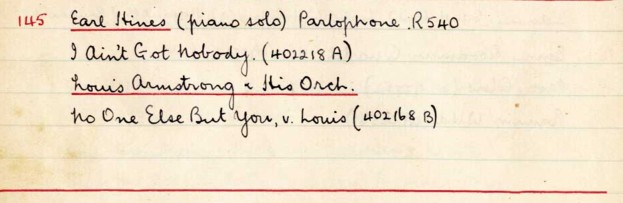 145 Earl Hines (piano solo) Parlophone. R540
I Ain't Got Nobody. (402218 A)
Louis Armstrong & His Orch.
No One Else But You, v. Louis (402168 B)